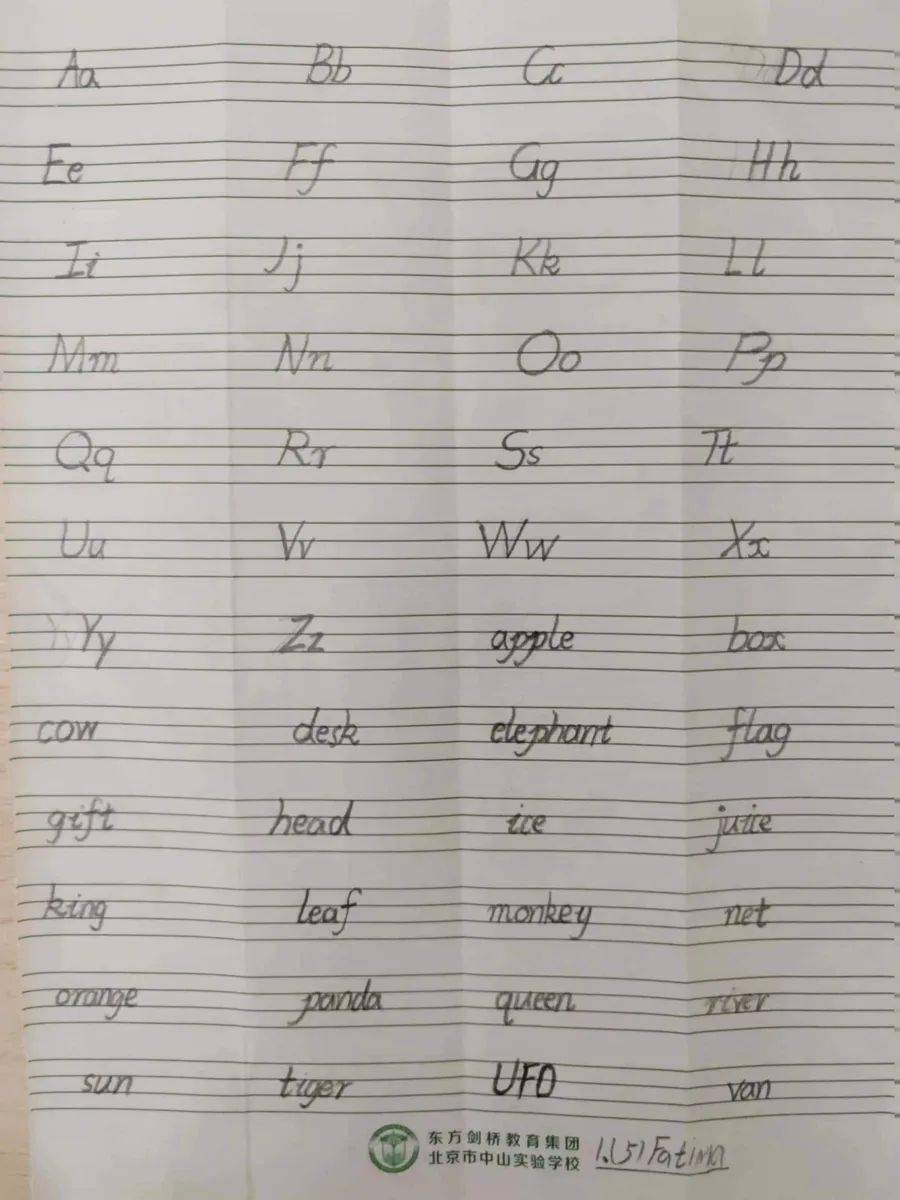 Aa Bb Cc Dd
Ee Ff Gg Hh
Ii Jj Kk Ll
Mm Nn Oo Pp
Qq Rr Ss Tt
Uu Vv Ww Xx
Yy Zz apple box
cow desk elephant flag
gift head ice juice
king leaf monkey net
orange panda queen river
sun tiger UFO van
东方剑桥教育集团
北京市中山实验学校 1.(5) Fatima